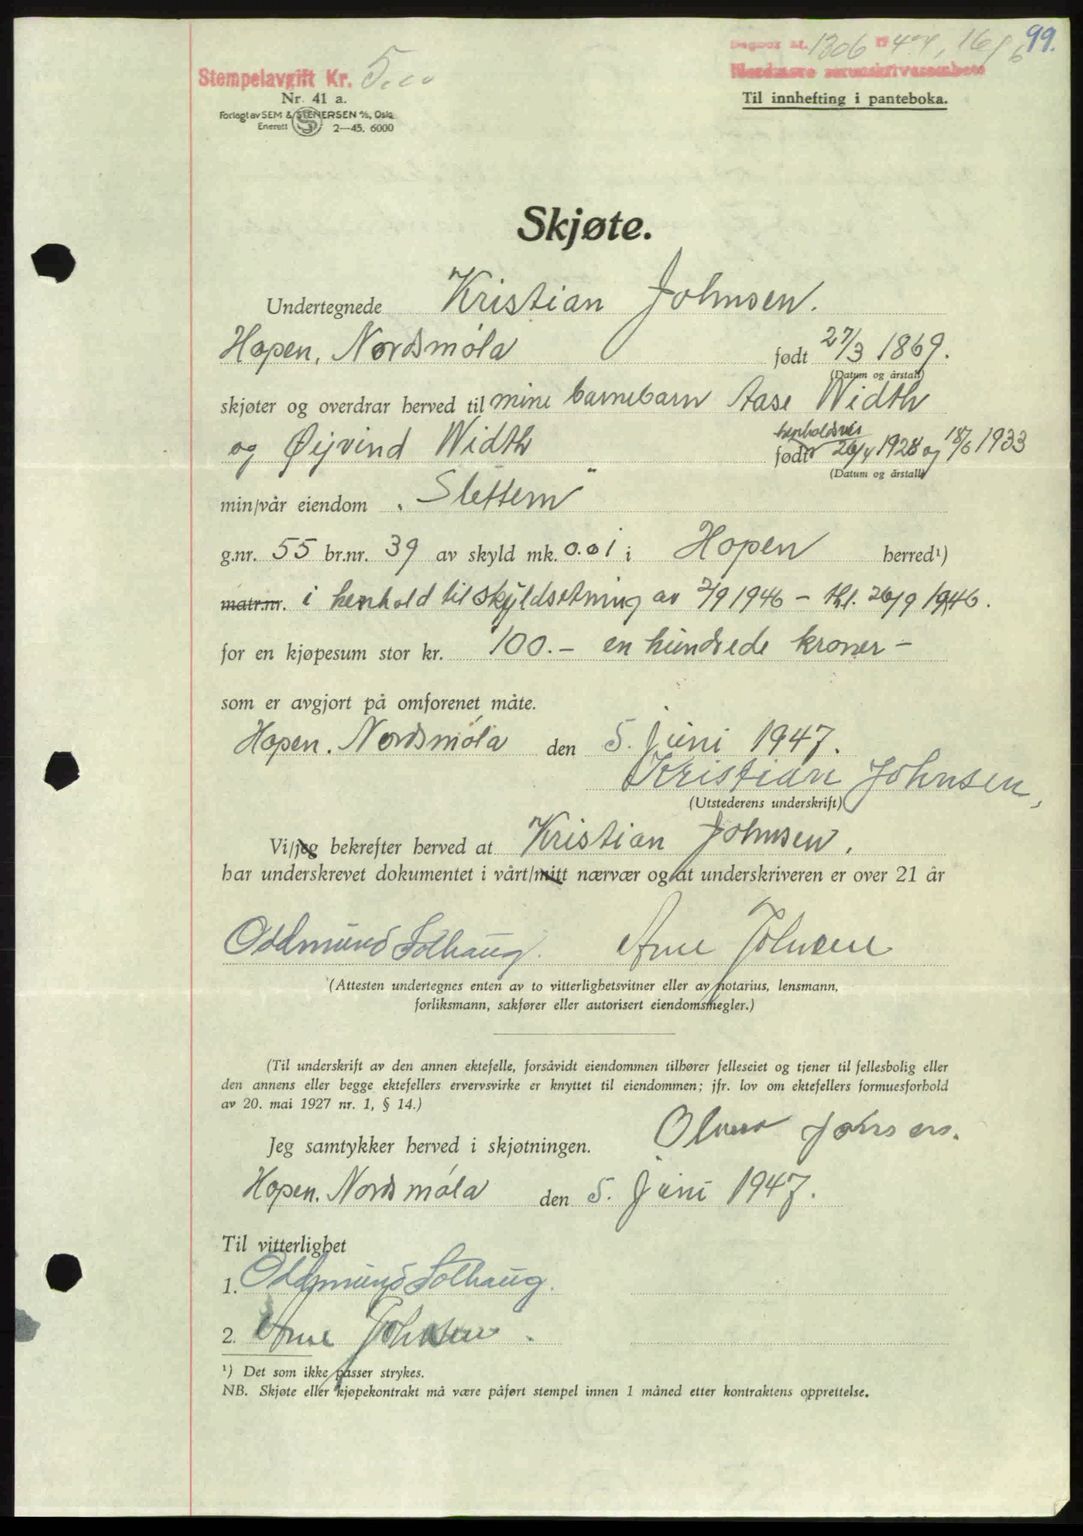 99.
Dagbok nr. 1306 1947, 16/6
Nordmøre sorenskriverembete
Stempelavgift Kr. 5.00
Nr. 41 a.
Til innhefting i panteboka.
Forlagt av SEM & STENERSEN A/S, Oslo
Enerett 2—45. 6000
Skjøte.
Undertegnede Kristian Johnsen.
Hopen, Nordsmøla født 27/3 1869.
(Datum og årstall)
skjøter og overdrar herved til mine barnebarn Aase Width
og Øijvind Width henholdsvis født 26/4 1928 og 18/6 1933
(Datum og årstall)
min/vår eiendom „Slettem"
g.nr. 55 br.nr. 39 av skyld mk. 0.01 i Hopen herred¹)
matr.nr. i henhold til skyldsetning av 2/9 1946 – thl. 26/9 1946.
for en kjøpesum stor kr. 100.– en hundrede kroner –
som er avgjort på omforenet måte.
Hopen. Nordsmøla den 5. juni 1947.
Kristian Johnsen,
(Utstederens underskrift)
Vi/jeg bekrefter herved at Kristian Johnsen.
har underskrevet dokumentet i vårt/mitt nærvær og at underskriveren er over 21 år
Oddmund Solhaug. Arne Johnsen
(Attesten undertegnes enten av to vitterlighetsvitner eller av notarius, lensmann,
forliksmann, sakfører eller autorisert eiendomsmegler.)
(Til underskrift av den annen ektefelle, forsåvidt eiendommen tilhører felleseiet og tjener til fellesbolig eller
den annens eller begge ektefellers ervervsvirke er knyttet til eiendommen; jfr. lov om ektefellers formuesforhold
av 20. mai 1927 nr. 1, § 14.)
Jeg samtykker herved i skjøtningen. Johnsen.
Hopen. Nordsmøla den 5. juni 1947.
Til vitterlighet
1. Oddmund Solhaug.
2. Arne Johnsen.
¹) Det som ikke passer strykes.
NB. Skjøte eller kjøpekontrakt må være påført stempel innen 1 måned etter kontraktens opprettelse.